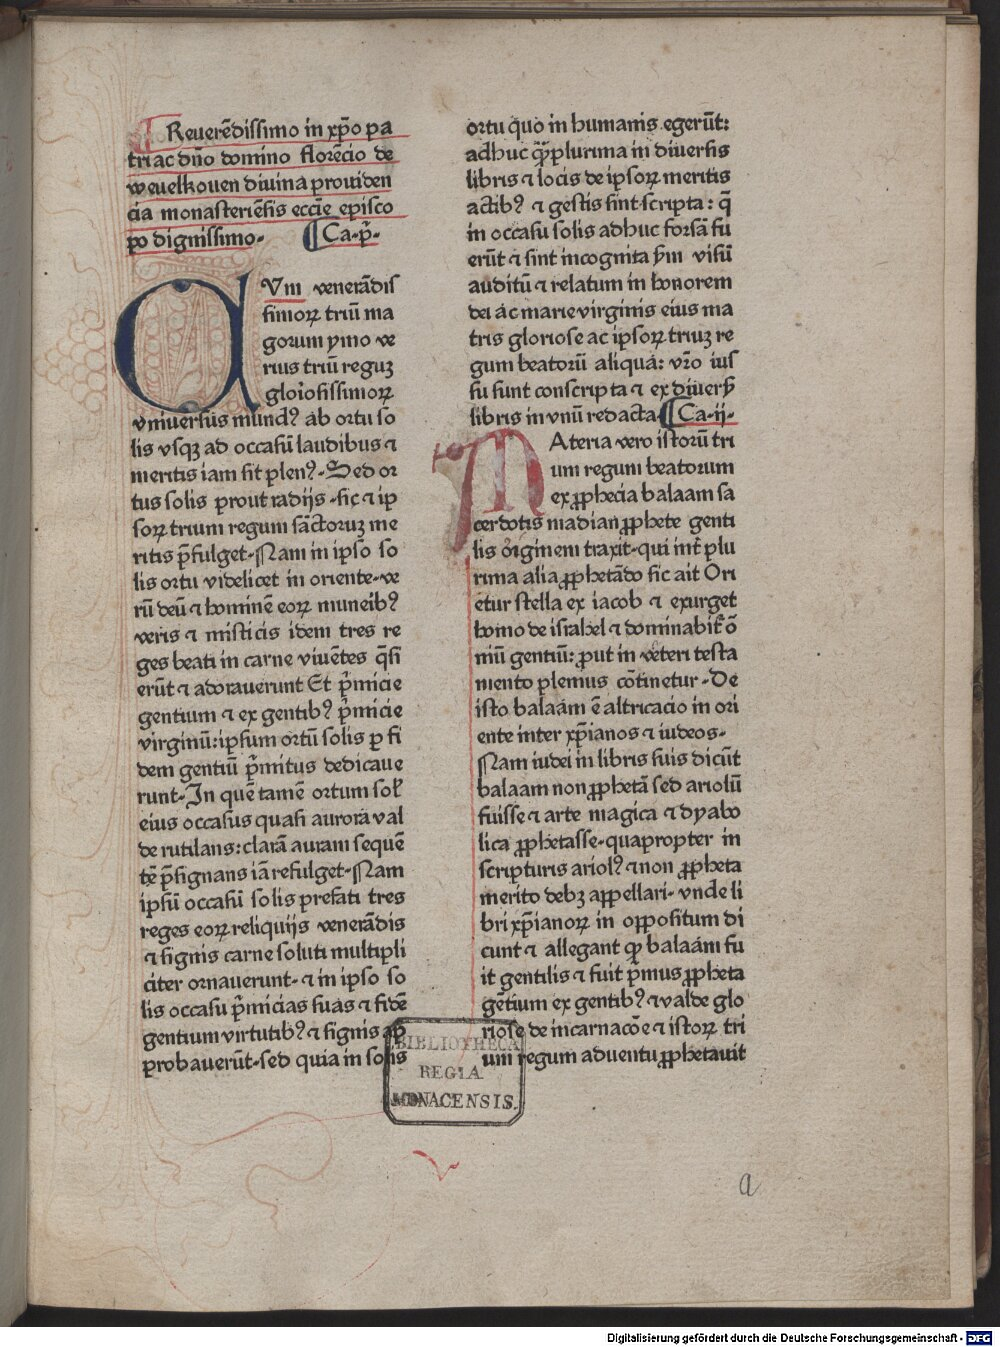 Reuerēdissimo in xp̄o pa
tri ac dn̄o domino florēcio de
wevelkouen diuina prouiden
cia monasteriēsis eccīe episco
po dignissimo. Ca. p̄.
CVm venerādis
simoꝝ triū ma
gorum ymo ve
rius triū reguꝫ
gloriosissimoꝝ
vniuersus mundꝰ ab ortu so
lis vsqꝫ ad occasū laudibus ⁊
meritis iam sit plenꝰ. Sed or
tus solis prout radijs. sic ⁊ ip
soꝝ trium regum sāctoruꝫ me
ritis p̄fulget. Nam in ipso so
lis ortu videlicet in oriente. ve
rū deū ⁊ hominē eoꝝ muneibꝰ
veris ⁊ misticis idem tres re
ges beati in carne viuētes q̄si
erūt ⁊ adorauerunt Et p̄micie
gentium ⁊ ex gentibꝰ p̄micie
virginū: ipsum ortū solis p fi
dem gentiū p̄mitus dedicaue
runt. In quē tamē ortum sol'
eius occasus quasi aurora val
de rutilans: clarā auram sequē
tē p̄signans iā refulget. Nam
ipsū occasū solis prefati tres
reges eoꝝ reliquijs venerādis
⁊ signis carne soluti multipli
citer ornauerunt. ⁊ in ipso so
lis occasu p̄micias suas ⁊ fidē
gentium virtutibꝰ ⁊ signis ap
probauerūt. sed quia in solis
ortu quo in humanis egerūt:
adhuc qꝫplurima in diuersis
libris ⁊ locis de ipsoꝝ meritis
actibꝰ ⁊ gestis sint scripta: q̄
in occasu solis adhuc forsā fu
erūt ⁊ sint incognita ꝑm visū
auditū ⁊ relatum in honorem
dei ac marie virginis eius ma
tris gloriose ac ipsoꝝ triuꝫ re
gum beatorū aliqua: vr̄o ius
su sunt conscripta ⁊ ex diuerẜ
libris in vnū redacta Ca. ij.
MAteria vero istorū tri
um regum beatorum
ex ꝓphecia balaam sa
cerdotis madian ꝓphete genti
lis originem traxit. qui int̄ plu
rima alia ꝓphetādo sic ait Ori
etur stella ex iacob ⁊ exurget
homo de israhel ⁊ dominabit̄ ō
niū gentiū: ꝓut in veteri testa
mento plenius cōtinetur. De
isto balaam ē altricacio in ori
ente inter xp̄ianos ⁊ iudeos.
Nam iudei in libris suis dicūt
balaam non ꝓphetā sed ariolū
fuisse ⁊ arte magica ⁊ dyabo
lica ꝓphetasse. quapropter in
scripturis ariolꝰ ⁊ non ꝓpheta
merito debꝫ appellari. vnde li
bri xp̄ianoꝝ in oppositum di
cunt ⁊ allegant ꝙ balaam fu
it gentilis ⁊ fuit p̄mus ꝓpheta
gētium ex gentibꝰ ⁊ valde glo
riose de incarnacōe ⁊ istoꝝ tri
um regum aduentu ꝓphetauit
BIBLIOTHECA
REGIA
MONACENSIS.
a
Digitalisierung gefördert durch die Deutsche Forschungsgemeinschaft - DFG